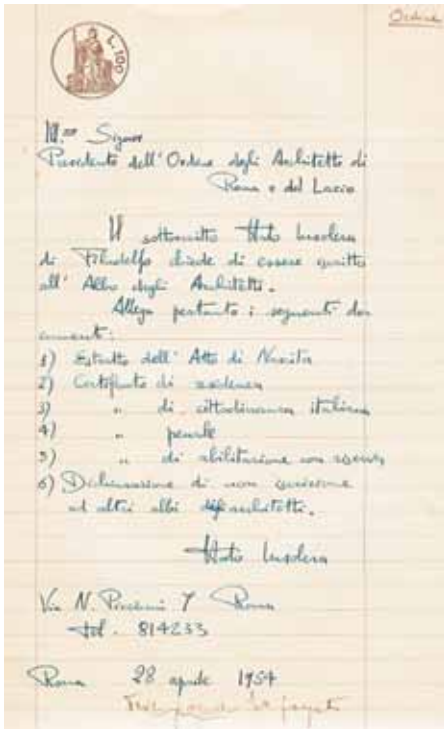 Ordine
L. 100
Ill.mo Signor
Presidente dell'Ordine degli Architetti di
Roma e del Lazio
Il sottoscritto Italo Insolera
di Filadelfo chiede di essere iscritto
all'Albo degli Architetti.
Allega pertanto i seguenti do
cumenti:
1) Estratto dell'Atto di Nascita
2) Certificato di residenza
3) " di cittadinanza italiana
4) " penale
5) " di abilitazione
6) Dichiarazione di non iscrizione
ad altri albi architetti.
Italo Insolera
Via N. Piccinni 7 Roma
tel. 814233
Roma 28 aprile 1954